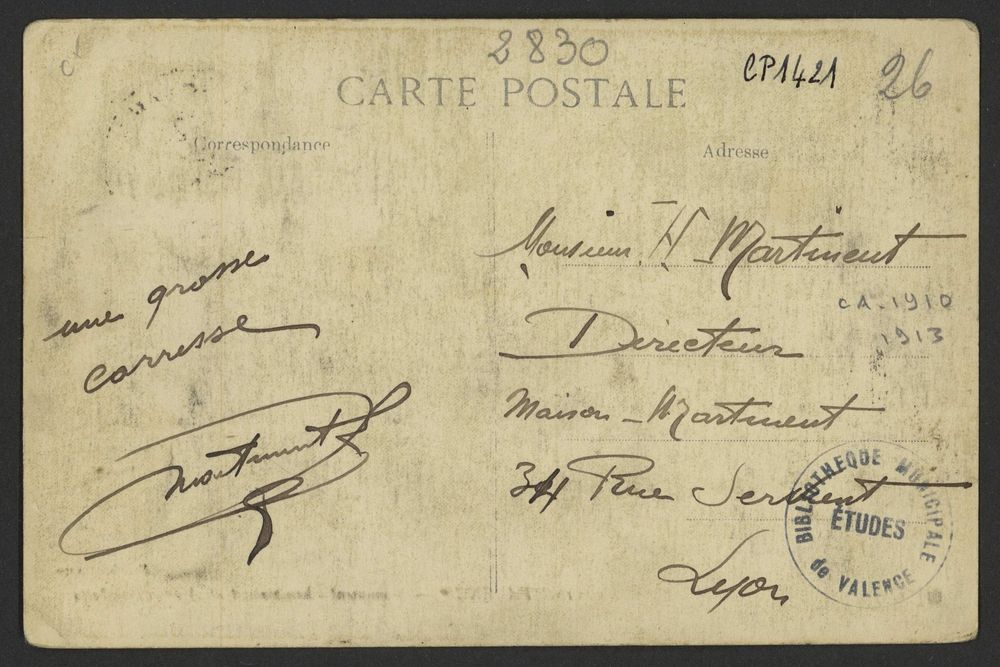 2830
CP1421
26
CARTE POSTALE
Correspondance
Adresse
une grosse
carresse
Martinent
Monsieur H Martinent
CA-1910
1913
Directeur
Maison - Martinent
34 Rue Servient
Lyon
BIBLIOTHEQUE MUNICIPALE
ÉTUDES
de VALENCE